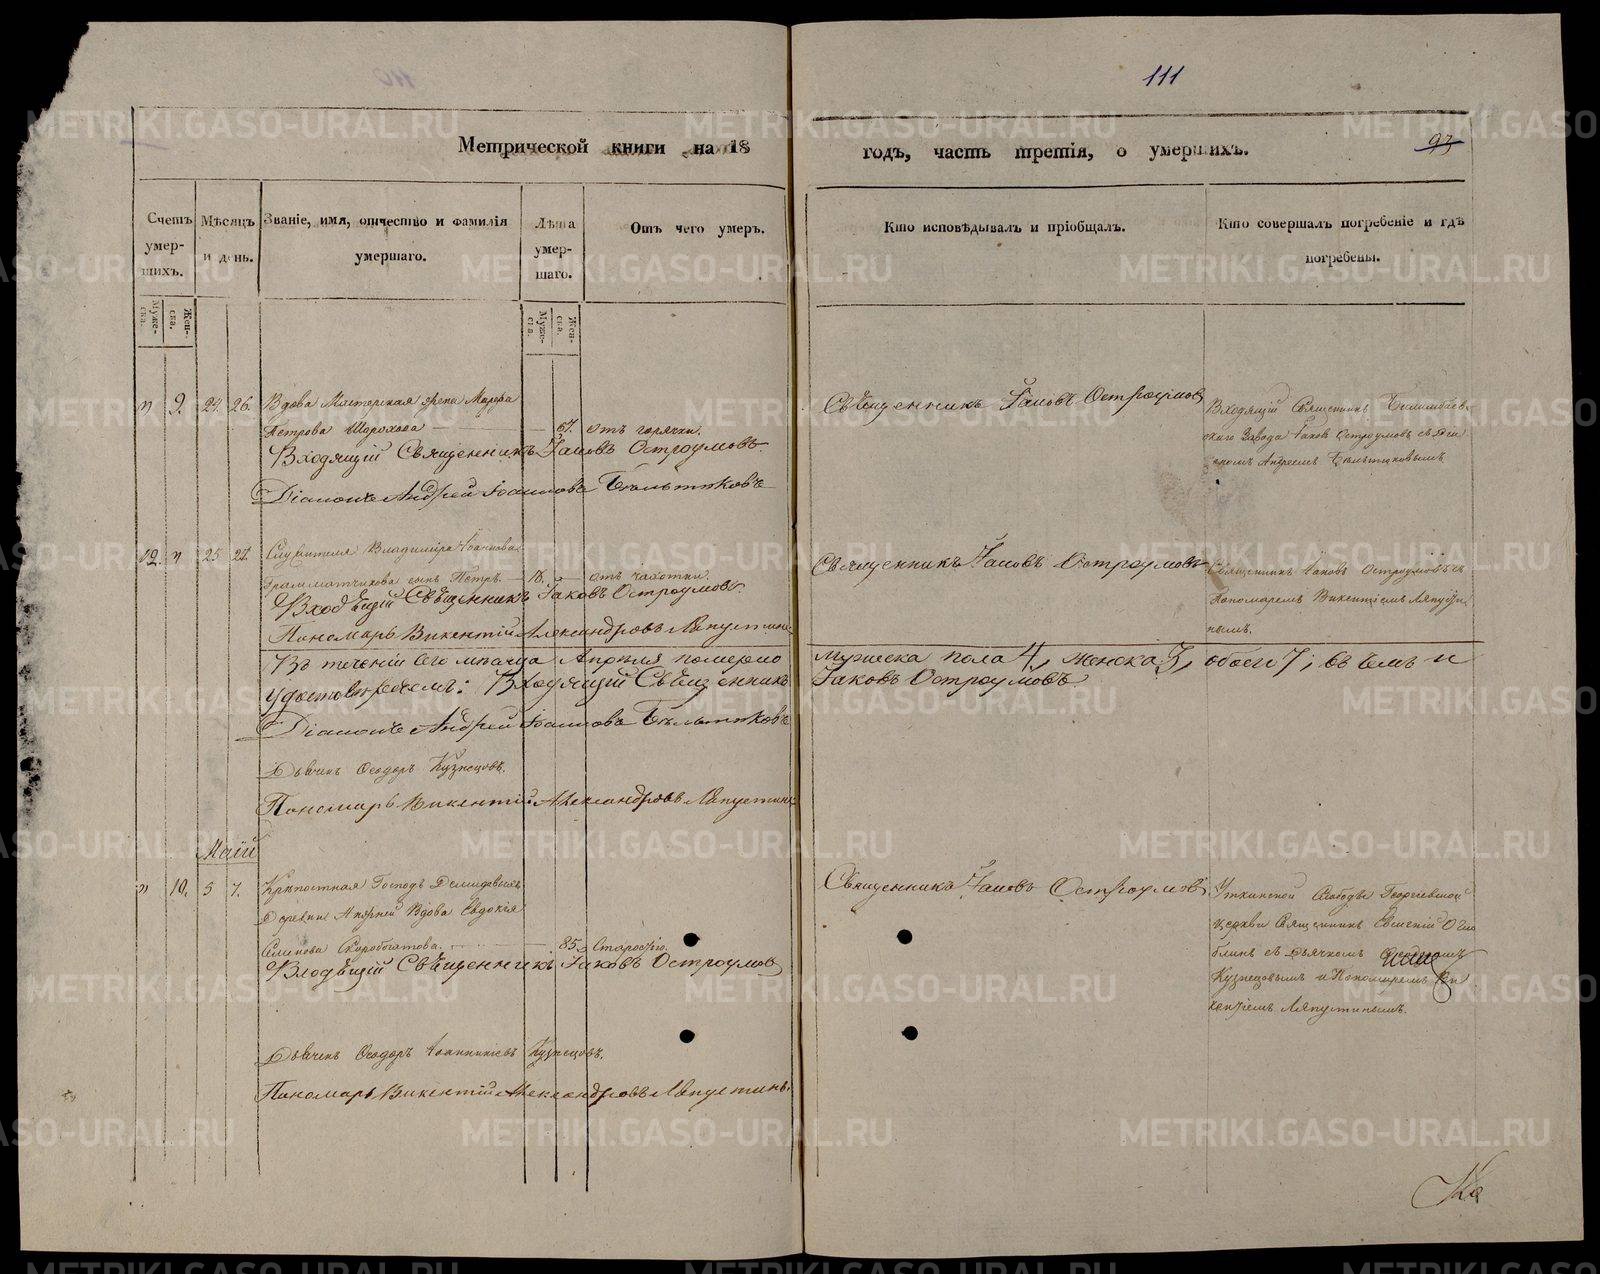 111
Метрической книги на 18
годъ, часть третія, о умершихъ.
93
Счетъ умер-
шихъ.
Мѣсяцъ
и день.
Званіе, имя, отчество и фамилія
умершаго.
Лѣта
умер-
шаго.
Отъ чего умеръ.
Кто исповѣдывалъ и пріобщалъ.
Кто совершалъ погребеніе и гдѣ
погребены.
Муже-
ска.
Жен-
ска.
Муже-
ска.
Жен-
ска.
9. 24. 26. Вдова Мастерская жена Марфа
Петрова Шорохова 67. отъ горячки.
Входящій Священникъ Іаковъ Остроумовъ.
Діаконъ Андрей Іоанновъ Бѣльтюковъ
Священникъ Іаковъ Остроумовъ
Входящій Священникъ Билимбаев-
скаго Завода Іаковъ Остроумовъ съ Діа
кономъ Андреемъ Бѣльтюковымъ
12. 25 27. Служителя Владиміра Іоаннова
Грамматчикова сынъ Петръ 18. отъ чахотки.
Входящій Священникъ Іаковъ Остроумовъ.
Пономарь Викентій Александровъ Ляпустинъ
Священникъ Іаковъ Остроумовъ
Священникъ Іаковъ Остроумовъ съ
Пономаремъ Викентіемъ Ляпусти
нымъ.
Въ теченіи сего мѣсяца Апрѣля померло мужеска пола 4, женска 3, обоего 7; въ чемъ и
удостовѣряемъ: Входящій Священникъ Іаковъ Остроумовъ.
Діаконъ Андрей Іоанновъ Бѣльтюковъ
Дьячекъ Ѳеодоръ Кузнецовъ.
Пономарь Викентій Александровъ Ляпустинъ
Маій
10. 5 7. Крѣпостная Господъ Демидовыхъ
Деревни Вдова Евдокія
Скоробогатова. 85. Старостію.
Входящій Священникъ Іаковъ Остроумовъ
Дьячекъ Ѳеодоръ Іоанникіевъ Кузнецовъ.
Пономарь Викентій Александровъ Ляпустинъ.
Священникъ Іаковъ Остроумовъ
Уткинской Слободы Георгіевской
церкви Священникъ Евгеній Огло
блинъ съ Дьячкомъ
Кузнецовымъ и Пономаремъ Ви
кентіемъ Ляпустинымъ.
METRIKI.GASO-URAL.RU